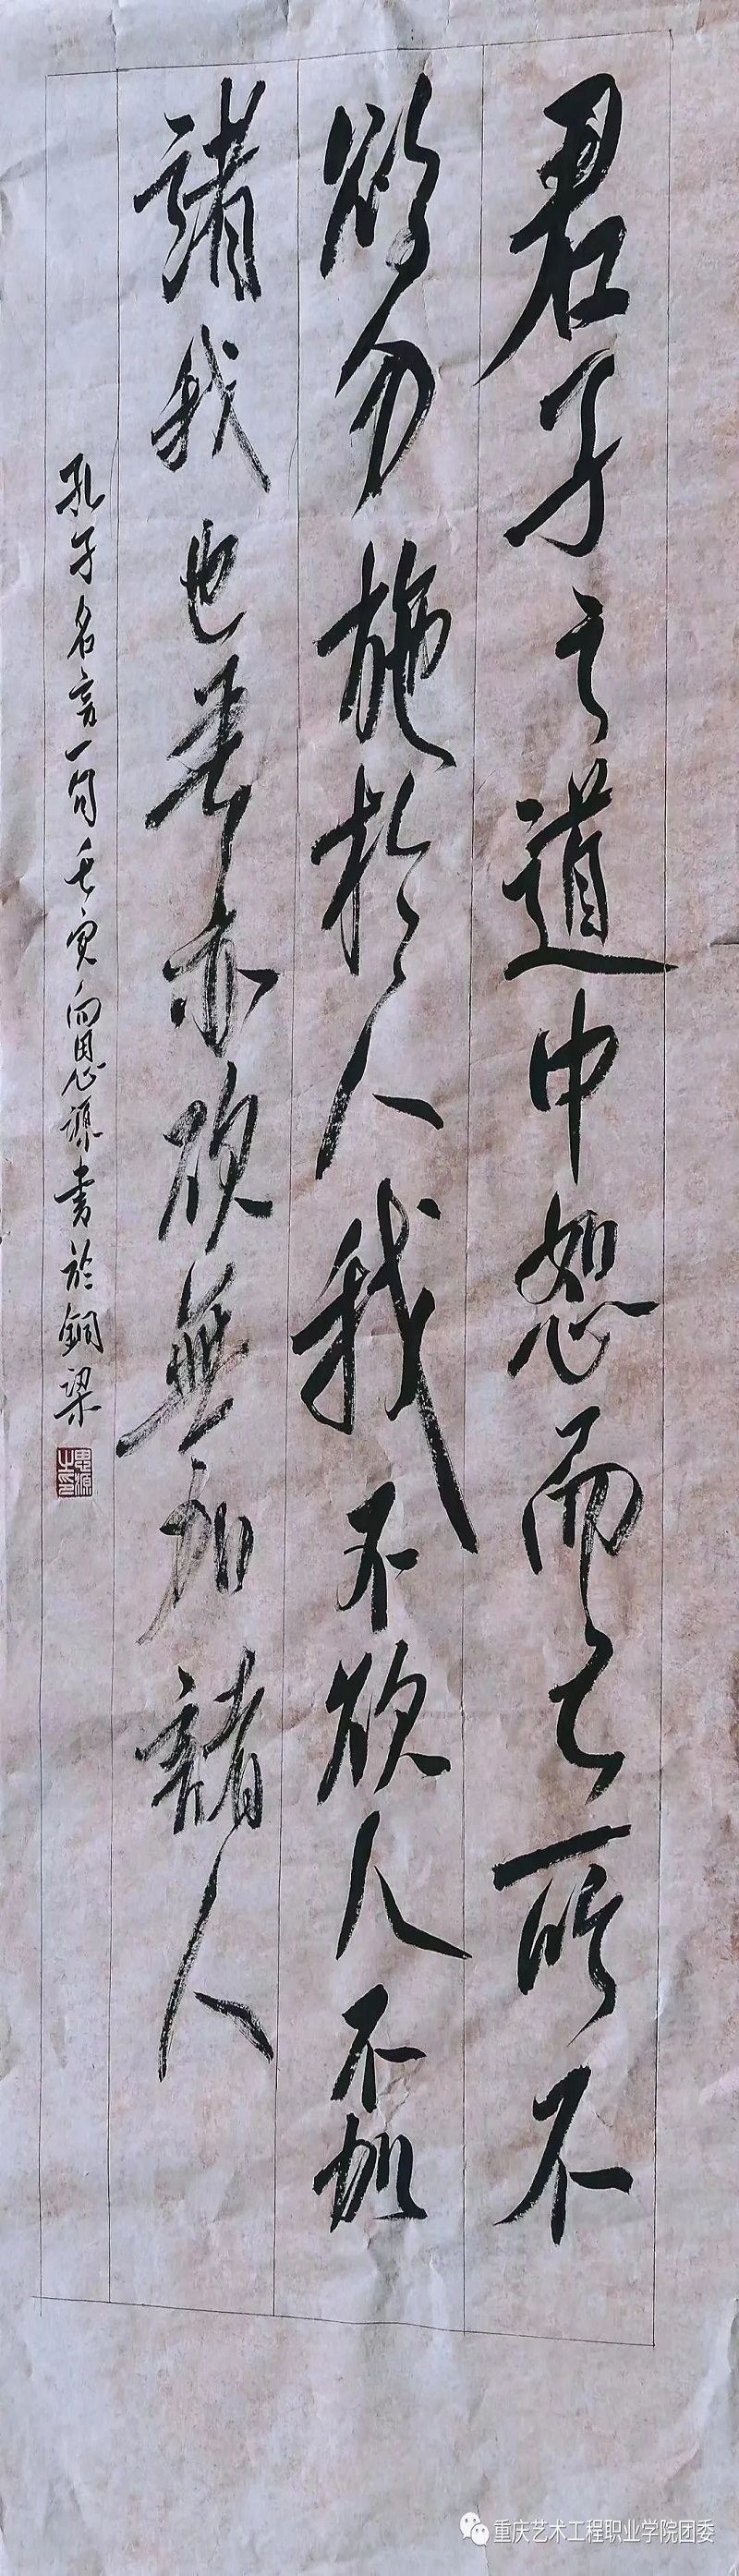 君子之道中恕而已所不
欲勿施於人我不欲人不加
諸我也吾亦欲無加諸人
孔子名言一句壬寅向思源書於銅梁
思源之印
重庆艺术工程职业学院团委